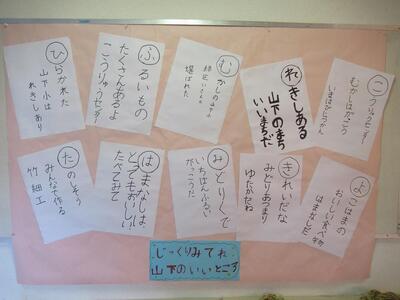 こうりゅうセンター
むかしはがっこう
れきしある
山下のまち
いいまちだ
むかしの
ふるいもの
たくさんあるよ
こうりゅうセンター
ひらかれた
山下小は
れきしあり
よこはまの
おいしい食べ物
はまなしだ
きれいだな
みどりあつまり
ゆたかだね
みどりくで
いちばんふるい
がっこうだ
はまなしは、
とってもおいしい
たべてみて
たのしそう
みんなで作る
竹細工
じっくりみてね
山下のいいところ